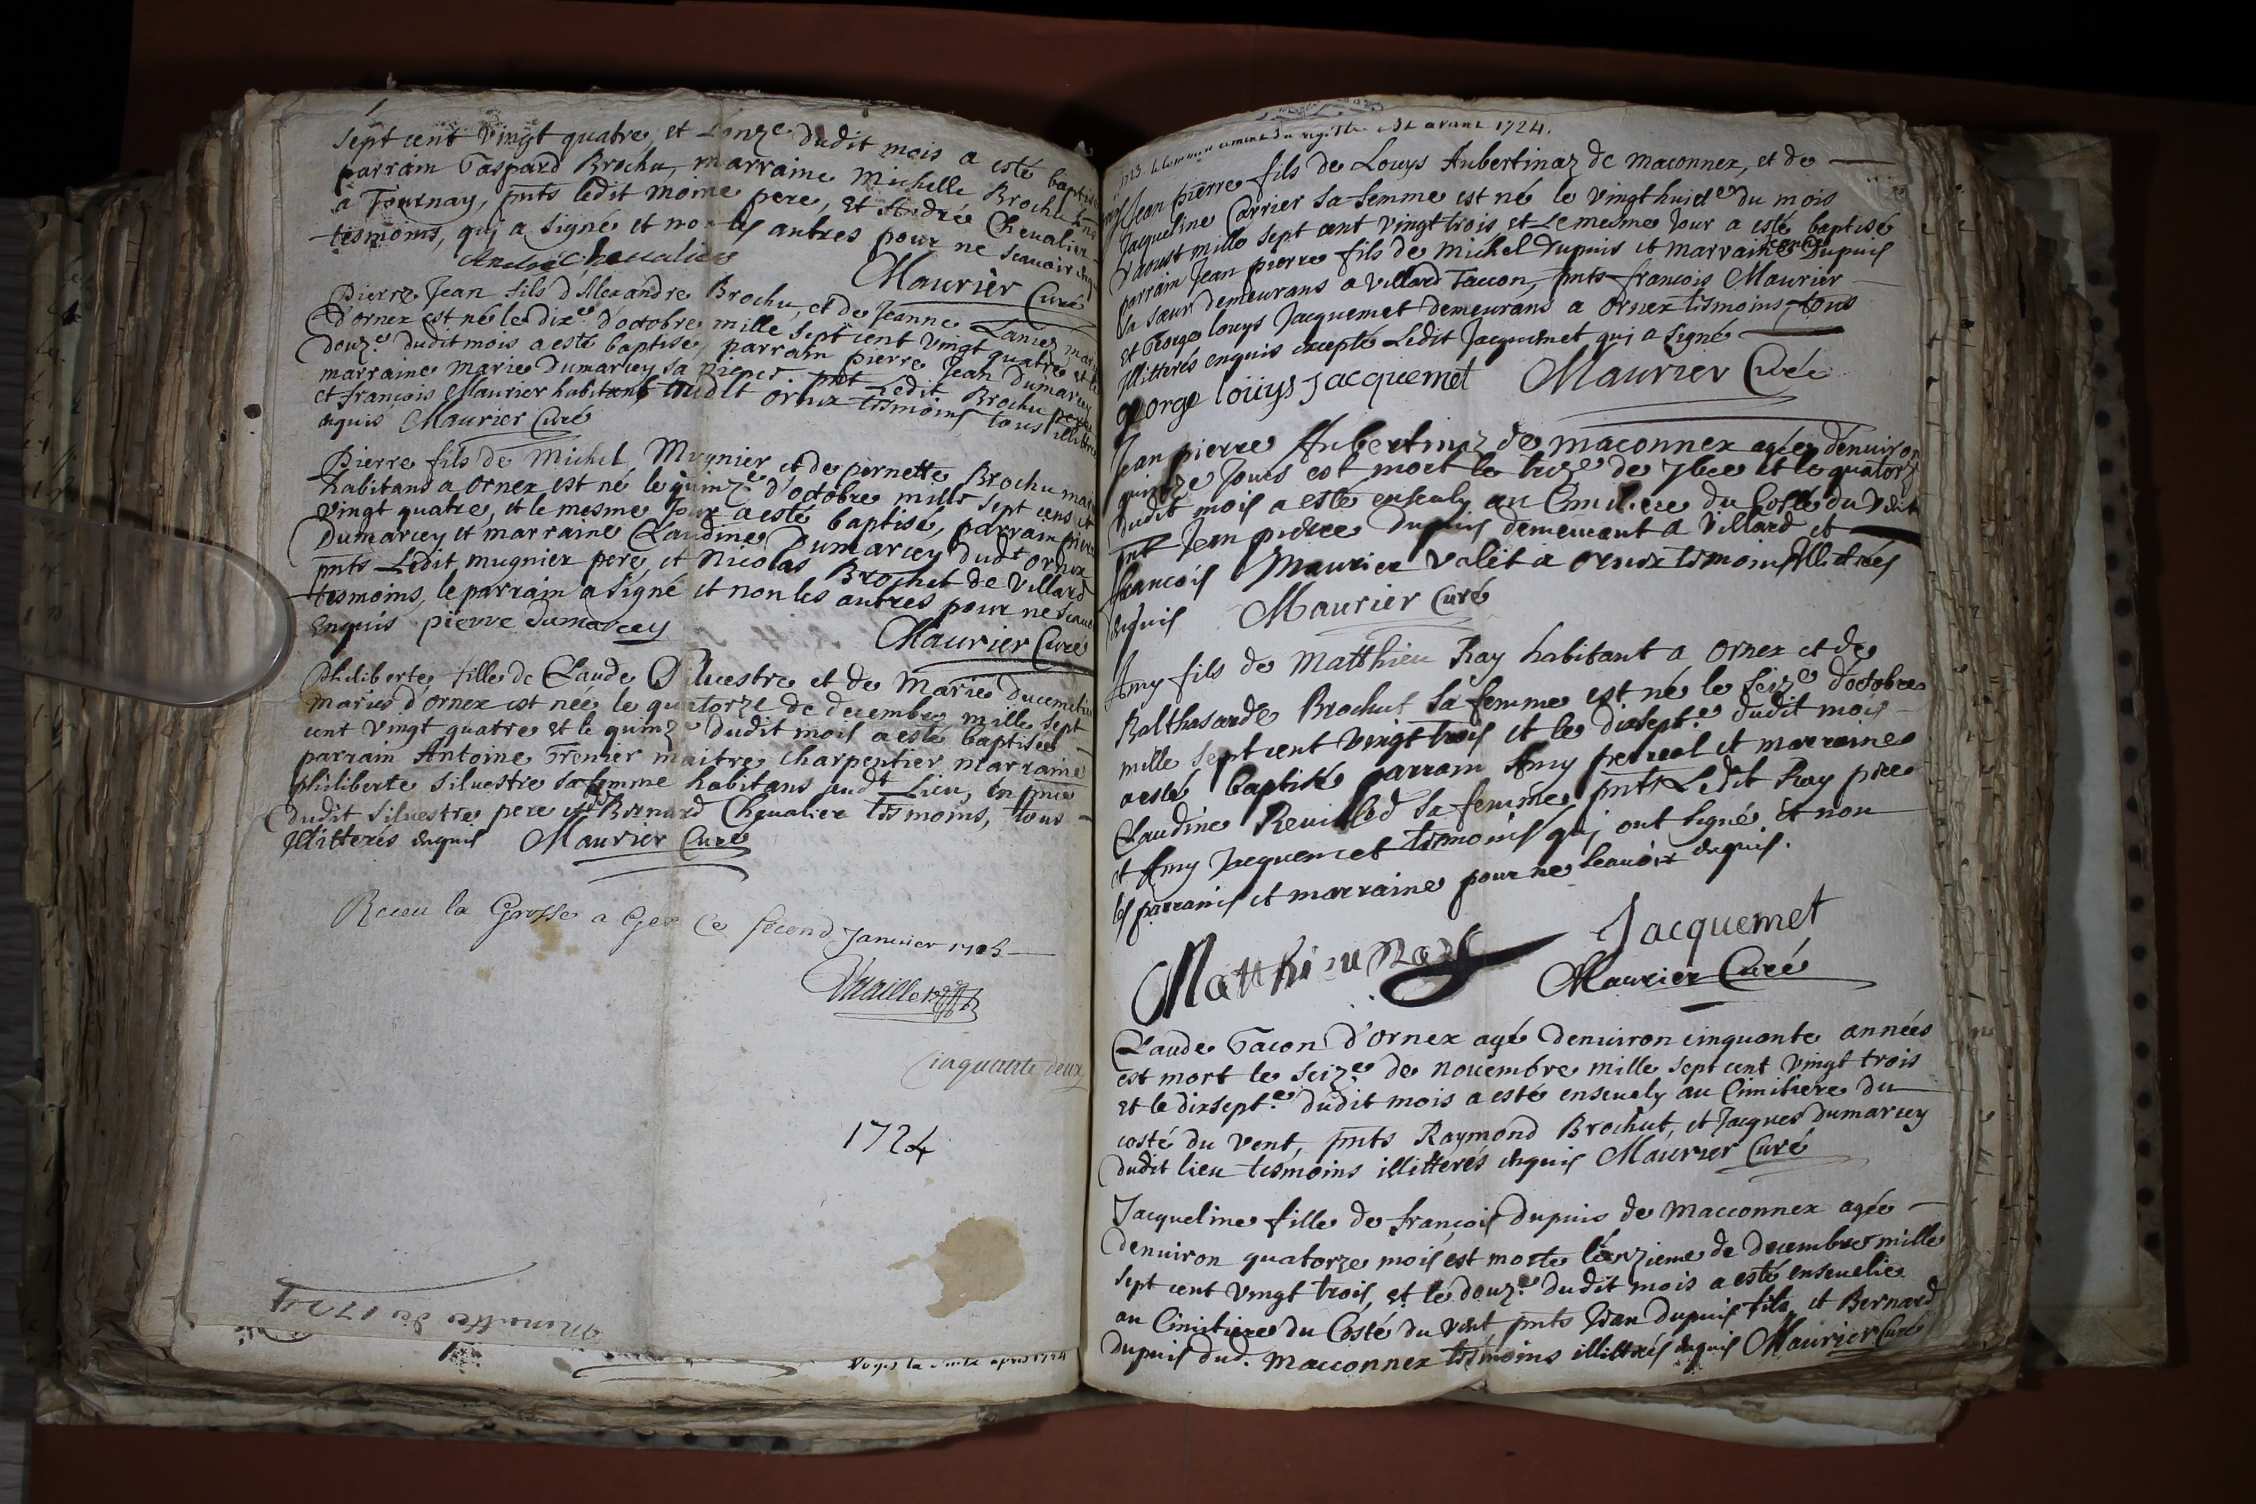 sept cent vingt quatre, et L'onze dudit mois a esté baptisé
parrain Gaspard Brochu, marraine Michelle Brochu
a Tournay, pnts ledit moine pere, et André Chevalier
tesmoins, qui a signé et non les autres pour ne scavoir
André Chevalier
Maurier Curé
Pierre Jean fils d'Alexandre Brochu, et de Jeanne Lanier
d'ornex est né le dix.e d'octobre mille sept cent vingt quatre et le
douz.e dudit mois a esté baptisé, parrain pierre Jean Dumarcey
marraine marie Dumarcey sa niepce. pnt Ledit Brochu pere
et françois Maurier habitans tudlt ornex tesmoins tous illittr
enquis Maurier Curé
Pierre fils de Michel Mugnier et de pernette Brochu
habitans a ornex est né le quinz.e d'octobre mille sept cens et
vingt quatre, et le mesme Jour a esté baptisé, parrain pierre
Dumarcey et marraine Claudine Dumarcey dudt ornex
pnts Ledit mugnier pere, et Nicolas Brochet de Villard
tesmoins, le parrain a signé et non les autres pour ne scavoir
enquis pierre Dumarcey
Maurier Curé
Philiberte fille de Claude Siluestre et de Marie
mariés d'ornex est née le quatorze de decembre mille sept
cent vingt quatre et le quinz.e dudit mois a esté baptisée
parrain Antoine Grenier maitre charpentier, marraine
philiberte siluestre sa femme habitans audt Lieu, en pnce
dudit siluestre pere et Bernard Chevalier tesmoins, tous
illitterés enquis Maurier Curé
Receu la Grosse a Gex Ce second Janvier 1725
Cinquante deux
1724
Minutte de 1724
Voyes la suite apres 1724
1723. le commencement du registre est avant 1724.
Jean pierre fils de Louys Aubertinaz de maconnex, et de
Jacqueline Carrier sa femme est né le vingthuict.e du mois
d'aoust mille sept cent vingt trois, et Le mesme Jour a esté baptisé
parrain Jean pierre fils de Michel Dupuis et marraine Jeanne Dupuis
sa sœur demeurans a villard Taccon, pnts françois Maurier
et George louys Jacquemet demeurans a Ornex tesmoins, tous
illitterés enquis excepté Ledit Jacquemet qui a signé
george loüys Jacquemet Maurier Curé
Jean pierre Aubertinaz de maconnex agée denuiron
quinze Jours est mort le treiz.e de 7bre et le quatorz.
dudit mois a esté enseuly au Cimitiere du Costé du Vent
pnt Jean pierre Dupuis demeurant a Villard et
françois Maurier valet a ornex tesmoins Illitrés
enquis Maurier Curé
Amy fils de Matthieu Ray habitant a Ornex et de
Balthasarde Brochut sa femme est né le seiz.e d'octobre
mille sept cent vingt trois et le dixsept.e dudit mois
a esté baptisé parrain Amy perreal et marraine
Claudine Reuillod sa femme, pnts Ledit Ray pere
et Amy Jacquemet tesmoins qui ont signé et non
les parrains et marraine pour ne scauoir enquis.
Matthieu Ray Jacquemet
Maurier Curé
Claude Tacon d'ornex agé denuiron cinquante années
est mort le seiz.e de nouembre mille sept cent vingt trois
et le dixsept.e dudit mois a esté enseuely au Cimitiere du
costé du vent, pnts Raymond Brochut, et Jacques Dumarcey
dudit lieu tesmoins illitterés enquis Maurier Curé
Jacqueline fille de françois Dupuis de Macconnex agée
denuiron quatorze mois est morte l'onzieme de decembre mille
sept cent vingt trois, et le douz.e dudit mois a esté enseuelie
au Cimitiere du Costé du vent pnts Jean Dupuis fils, et Bernard
Dupuis dud. macconnex tesmoins illittrés enquis Maurier Curé